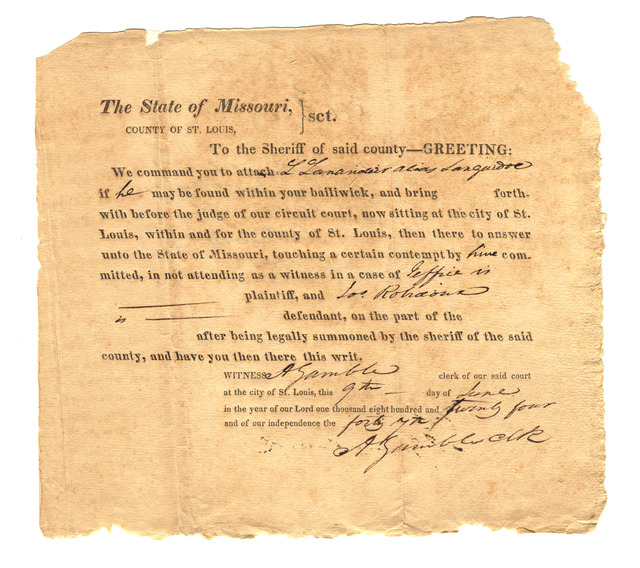 The State of Missouri, } sct.
COUNTY OF ST. LOUIS,
To the Sheriff of said county—GREETING:
We command you to attach L Lanandier alias Languedoc
if he may be found within your bailiwick, and bring forth-
with before the judge of our circuit court, now sitting at the city of St.
Louis, within and for the county of St. Louis, then there to answer
unto the State of Missouri, touching a certain contempt by him com-
mitted, in not attending as a witness in a case of is
plaintiff, and Jos Robidoux
is defendant, on the part of the
after being legally summoned by the sheriff of the said
county, and have you then there this writ.
WITNESS A Gamble clerk of our said court
at the city of St. Louis, this 9th day of June
in the year of our Lord one thousand eight hundred and twenty four
and of our independence the forty 7th
A Gamble clk